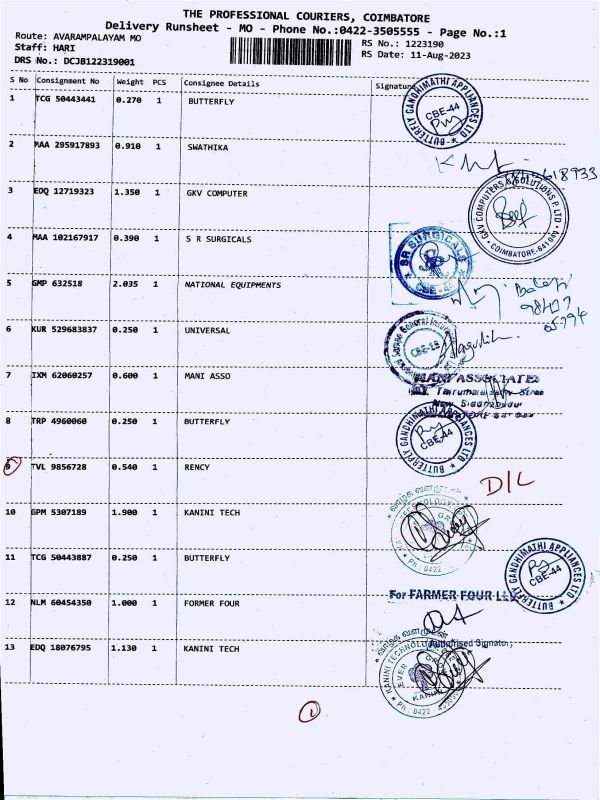 THE PROFESSIONAL COURIERS, COIMBATORE
Delivery Runsheet - MO - Phone No.:0422-3505555 - Page No.:1
Route: AVARAMPALAYAM MO
Staff: HARI
DRS No.: DCJB122319001
RS No.: 1223190
RS Date: 11-Aug-2023
S No Consignment No Weight PCS Consignee Details Signature
1 TCG 50443441 0.270 1 BUTTERFLY
BUTTERFLY GANDHIMATHI APPLIANCES LTD CBE-44
2 MAA 295917893 0.910 1 SWATHIKA
3 EDQ 12719323 1.350 1 GKV COMPUTER
GKV COMPUTERS & SOLUTIONS P.LTD COIMBATORE-641
4 MAA 102167917 0.390 1 S R SURGICALS
SR SURGICALS CBE-
5 GMP 632518 2.035 1 NATIONAL EQUIPMENTS
6 KUR 529683837 0.250 1 UNIVERSAL
General Insurance
7 IXM 62060257 0.600 1 MANI ASSO
MANI ASSOCIATE
8 TRP 4960060 0.250 1 BUTTERFLY
BUTTERFLY GANDHIMATHI APPLIANCES LTD CBE-44
9 TVL 9856728 0.540 1 RENCY
D/L
10 GPM 5307189 1.900 1 KANINI TECH
வாழ்க வளமுடன்
Ph : 0422
11 TCG 50443887 0.250 1 BUTTERFLY
BUTTERFLY GANDHIMATHI APPLIANCES LTD CBE-44
12 NLM 60454350 1.000 1 FORMER FOUR
For FARMER FOUR LL
Authorised Signator
13 EDQ 18076795 1.130 1 KANINI TECH
KANINI TECHNOLO
Ph : 0422
1